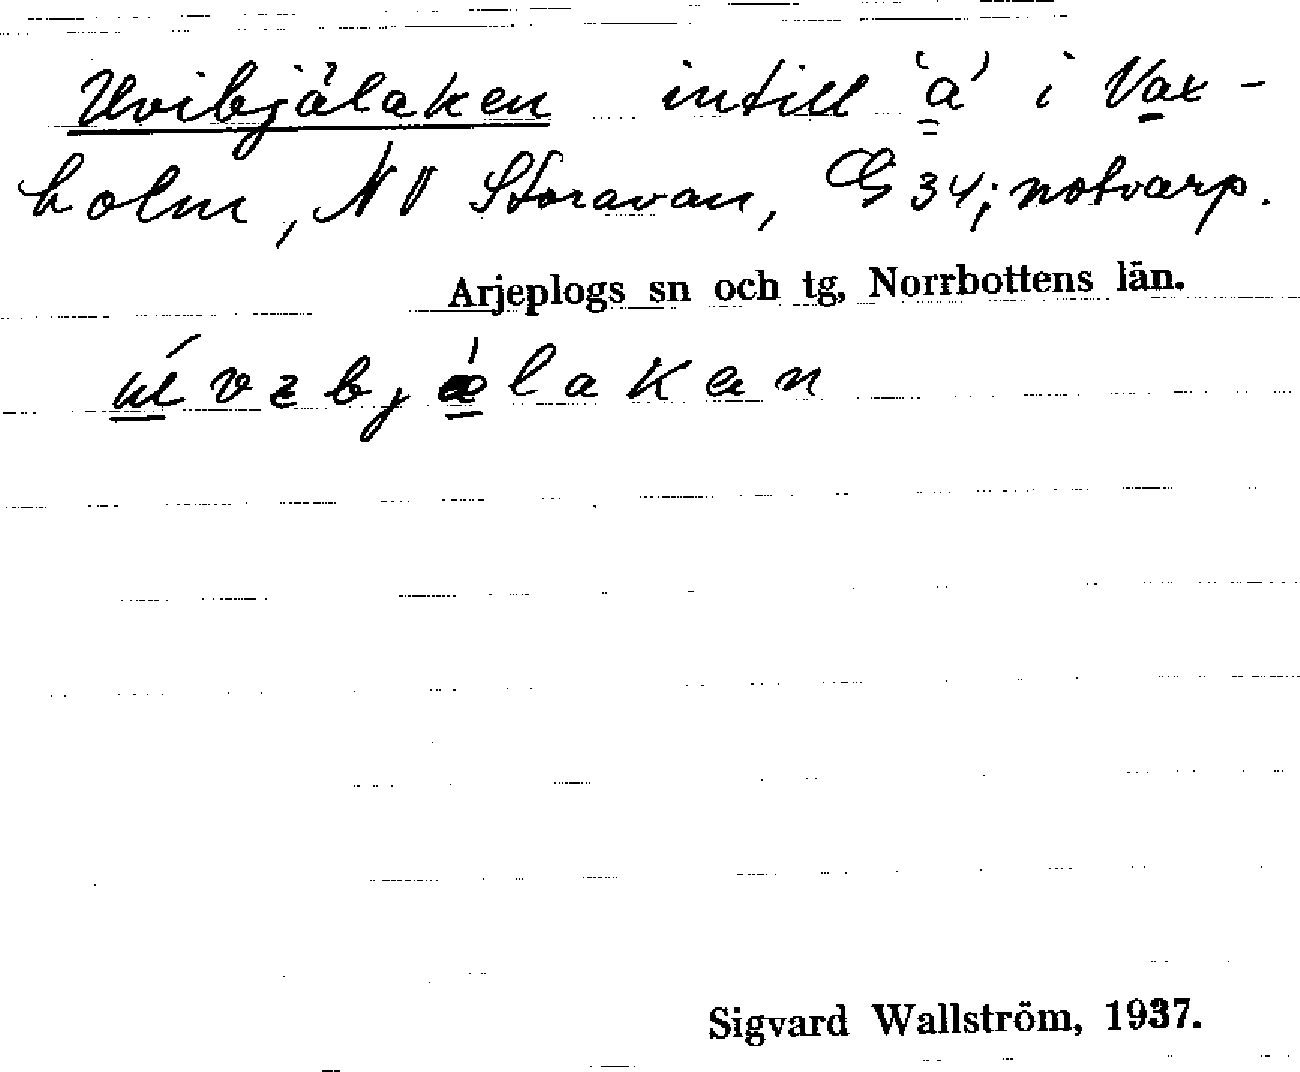 Uvibjälaken intill 'a' i Vax-
holm, NV Storavan, G 34; notvarp.
Arjeplogs sn och tg, Norrbottens län.
Sigvard Wallström, 1937.